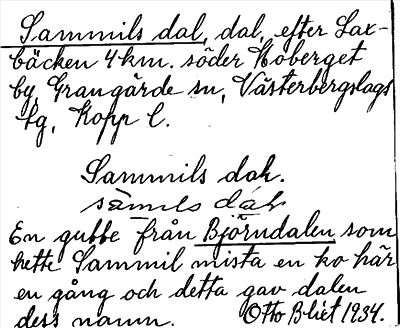 Sammils dal, dal, efter Lax-
bäcken 4 km. söder Hoberget
by, Grangärde sn, Västerbergslags
fg, Kopp l.
Sammils dal.
En gubbe från Björndalen som
hette Sammil mista en ko här
en gång och detta gav dalen
dess namn. Otto Blixt 1934.